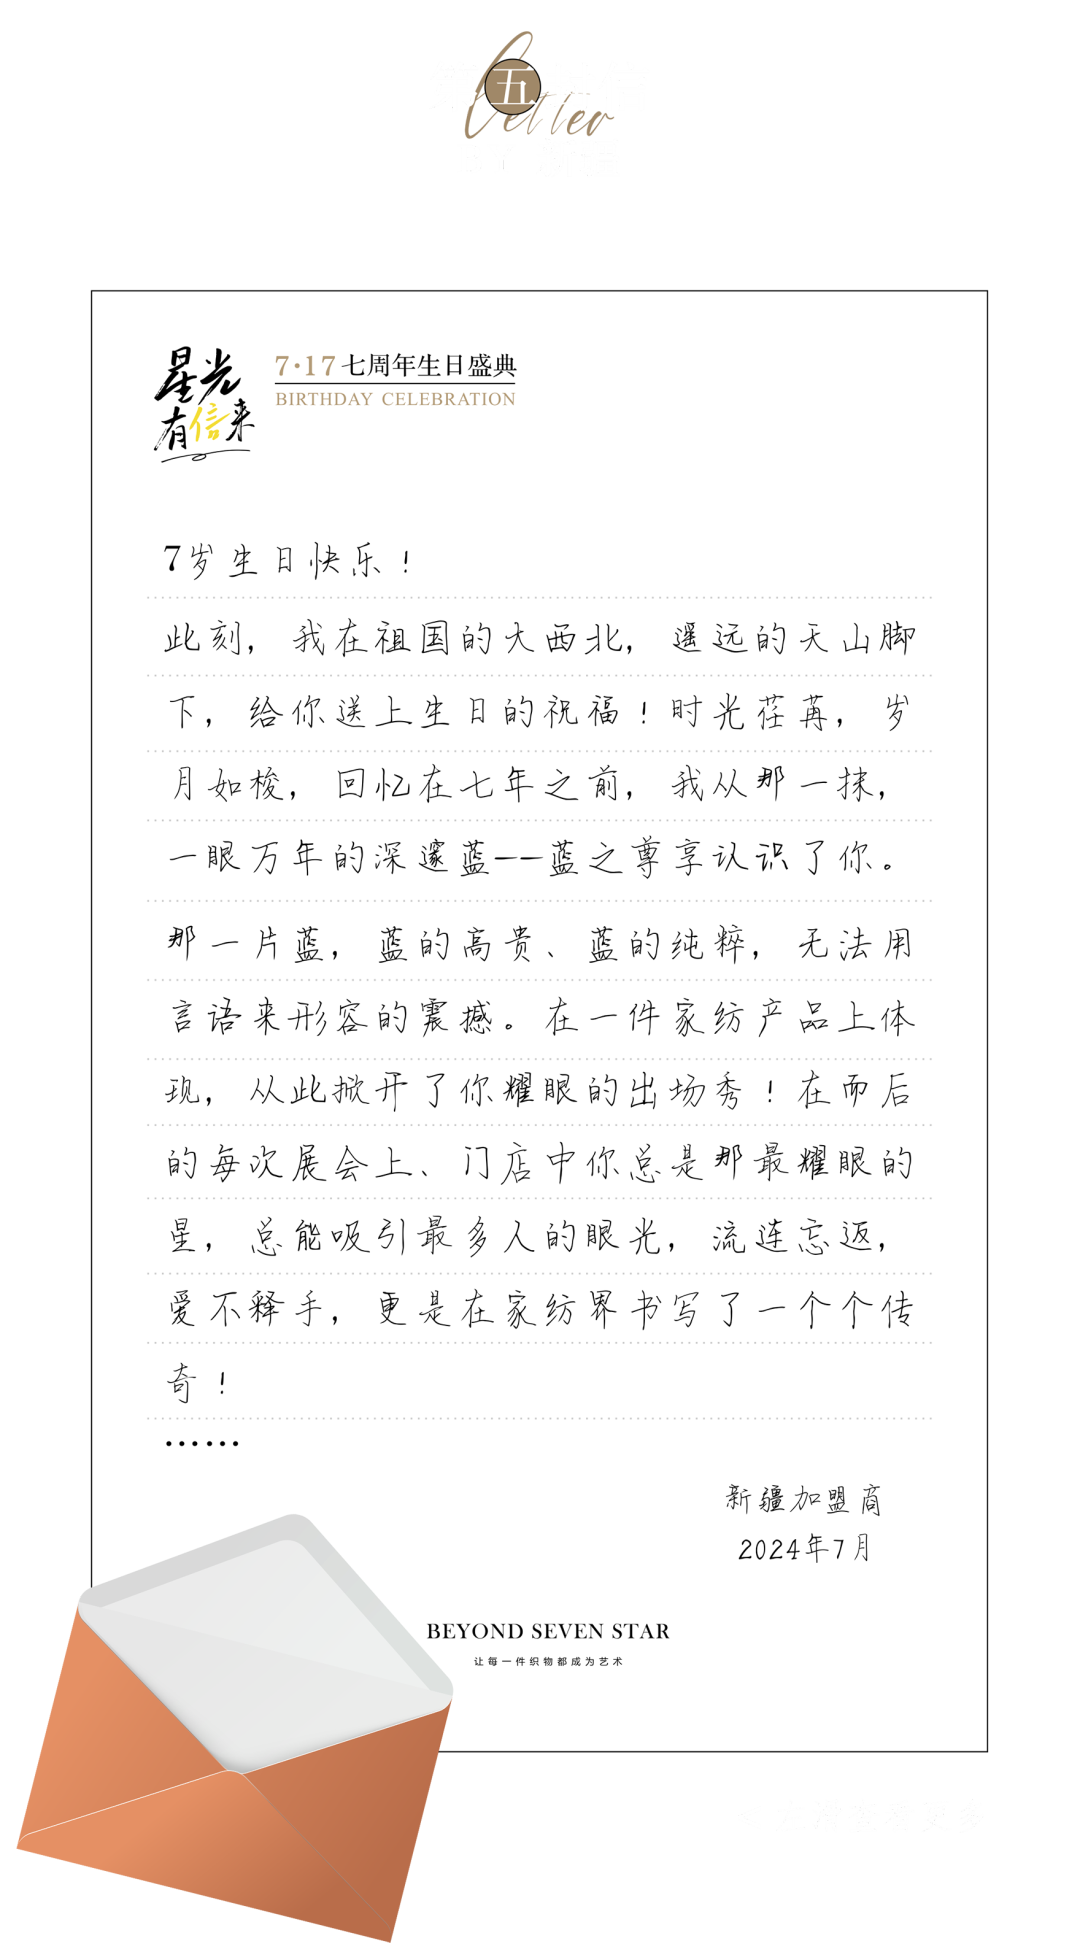 五
Letter
星光
有信来
7·17七周年生日盛典
BIRTHDAY CELEBRATION
7岁生日快乐！
此刻，我在祖国的大西北，遥远的天山脚
下，给你送上生日的祝福！时光荏苒，岁
月如梭，回忆在七年之前，我从那一抹，
一眼万年的深邃蓝——蓝之尊享认识了你。
那一片蓝，蓝的高贵、蓝的纯粹，无法用
言语来形容的震撼。在一件家纺产品上体
现，从此掀开了你耀眼的出场秀！在而后
的每次展会上、门店中你总是那最耀眼的
星，总能吸引最多人的眼光，流连忘返，
爱不释手，更是在家纺界书写了一个个传
奇！
……
新疆加盟商
2024年7月
BEYOND SEVEN STAR
让每一件织物都成为艺术